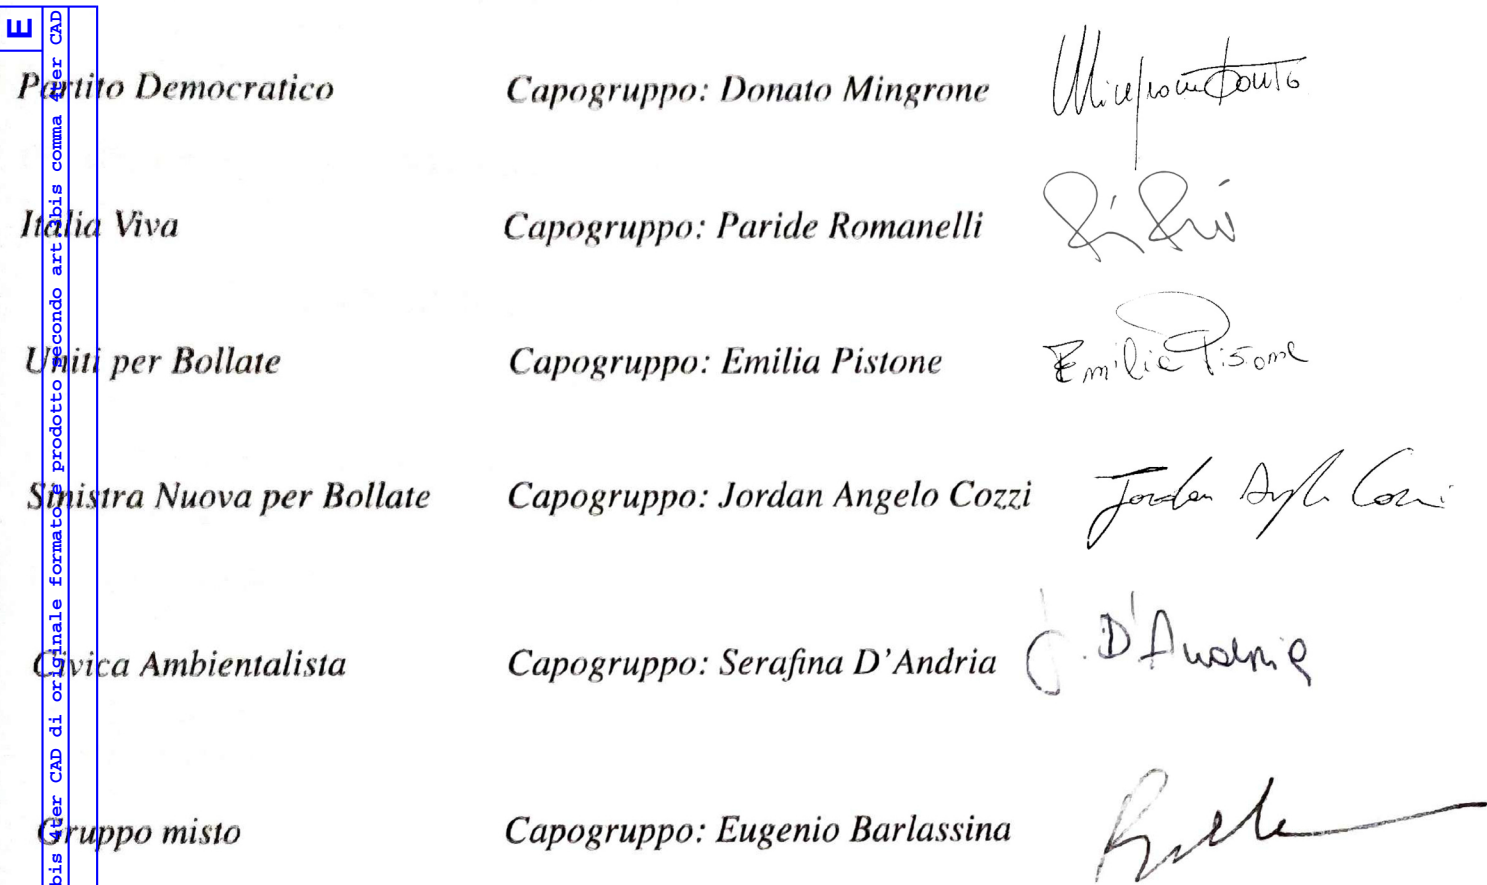 E
bis 4ter CAD di originale formato e prodotto secondo art 3bis comma 4ter CAD
Partito Democratico Capogruppo: Donato Mingrone
Italia Viva Capogruppo: Paride Romanelli
Uniti per Bollate Capogruppo: Emilia Pistone Emilia Pisone
Sinistra Nuova per Bollate Capogruppo: Jordan Angelo Cozzi Jordan Angelo Cozzi
Civica Ambientalista Capogruppo: Serafina D'Andria D'Andria
Gruppo misto Capogruppo: Eugenio Barlassina